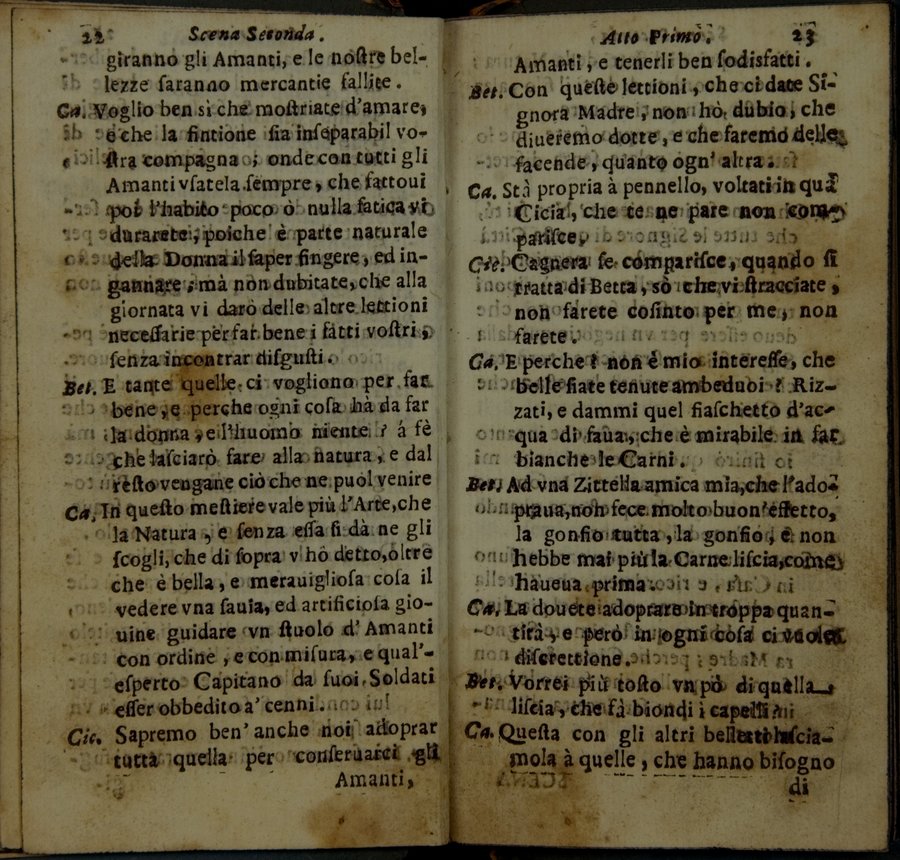 22 Scena Seconda.
giranno gli Amanti, e le noſtre bel-
lezze ſaranno mercantie fallite.
Ca. Voglio ben sì che moſtriate d'amare,
e che la fintione ſia inſeparabil vo-
ſtra compagna; onde con tutti gli
Amanti vſatela ſempre, che fattoui
poi l'habito poco ò nulla fatica vi
durarete; poiche è parte naturale
della Donna il ſaper fingere, ed in-
gannare; mà non dubitate, che alla
giornata vi darò delle altre lettioni
neceſſarie per far bene i fatti voſtri,
ſenza incontrar diſguſti.
Bet. E tante quelle ci vogliono per far
bene, e perche ogni coſa hà da far
la donna, e l'huomo niente? á fè
che laſciarò fare alla natura, e dal
reſto vengane ciò che ne puol venire
Ca. In queſto meſtiere vale più l'Arte, che
la Natura, e ſenza eſſa ſi dà ne gli
ſcogli, che di ſopra v'hò detto, oltre
che è bella, e merauiglioſa coſa il
vedere vna ſauia, ed artificioſa gio-
uine guidare vn ſtuolo d'Amanti
con ordine, e con miſura, e qual'-
eſperto Capitano da ſuoi Soldati
eſſer obbedito a' cenni.
Cic. Sapremo ben' anche noi adoprar
tutta quella per conſeruarci gli
Amanti,
Atto Primo. 23
Amanti, e tenerli ben ſodisfatti.
Bet. Con queſte lettioni, che ci date Si-
gnora Madre, non hò dubio, che
diueremo dotte, e che faremo delle
facende, quanto ogn' altra.
Ca. Stà propria à pennello, voltati in quà
Cicia, che te ne pare non com-
pariſce,
Cic. Cagnera ſe compariſce, quando ſi
tratta di Betta, sò che vi ſtracciate,
non farete coſinto per me, non
farete.
Ca. E perche? non è mio intereſſe, che
belle ſiate tenute ambeduoi? Riz-
zati, e dammi quel fiaſchetto d'ac-
qua di faua, che è mirabile in far
bianche le Carni.
Bet. Ad vna Zittella amica mia, che l'ado-
praua, non fece molto buon'effetto,
la gonfiò tutta, la gonfiò, e non
hebbe mai più la Carne liſcia, come
haueua prima.
Ca. La douete adoprare in troppa quan-
tità, e però in ogni coſa ci vuole
diſcrettione.
Bet. Vorrei più toſto vn pò di quella
liſcia, che fà biondi i capelli
Ca. Queſta con gli altri belletti laſcia-
mola à quelle, che hanno biſogno
di